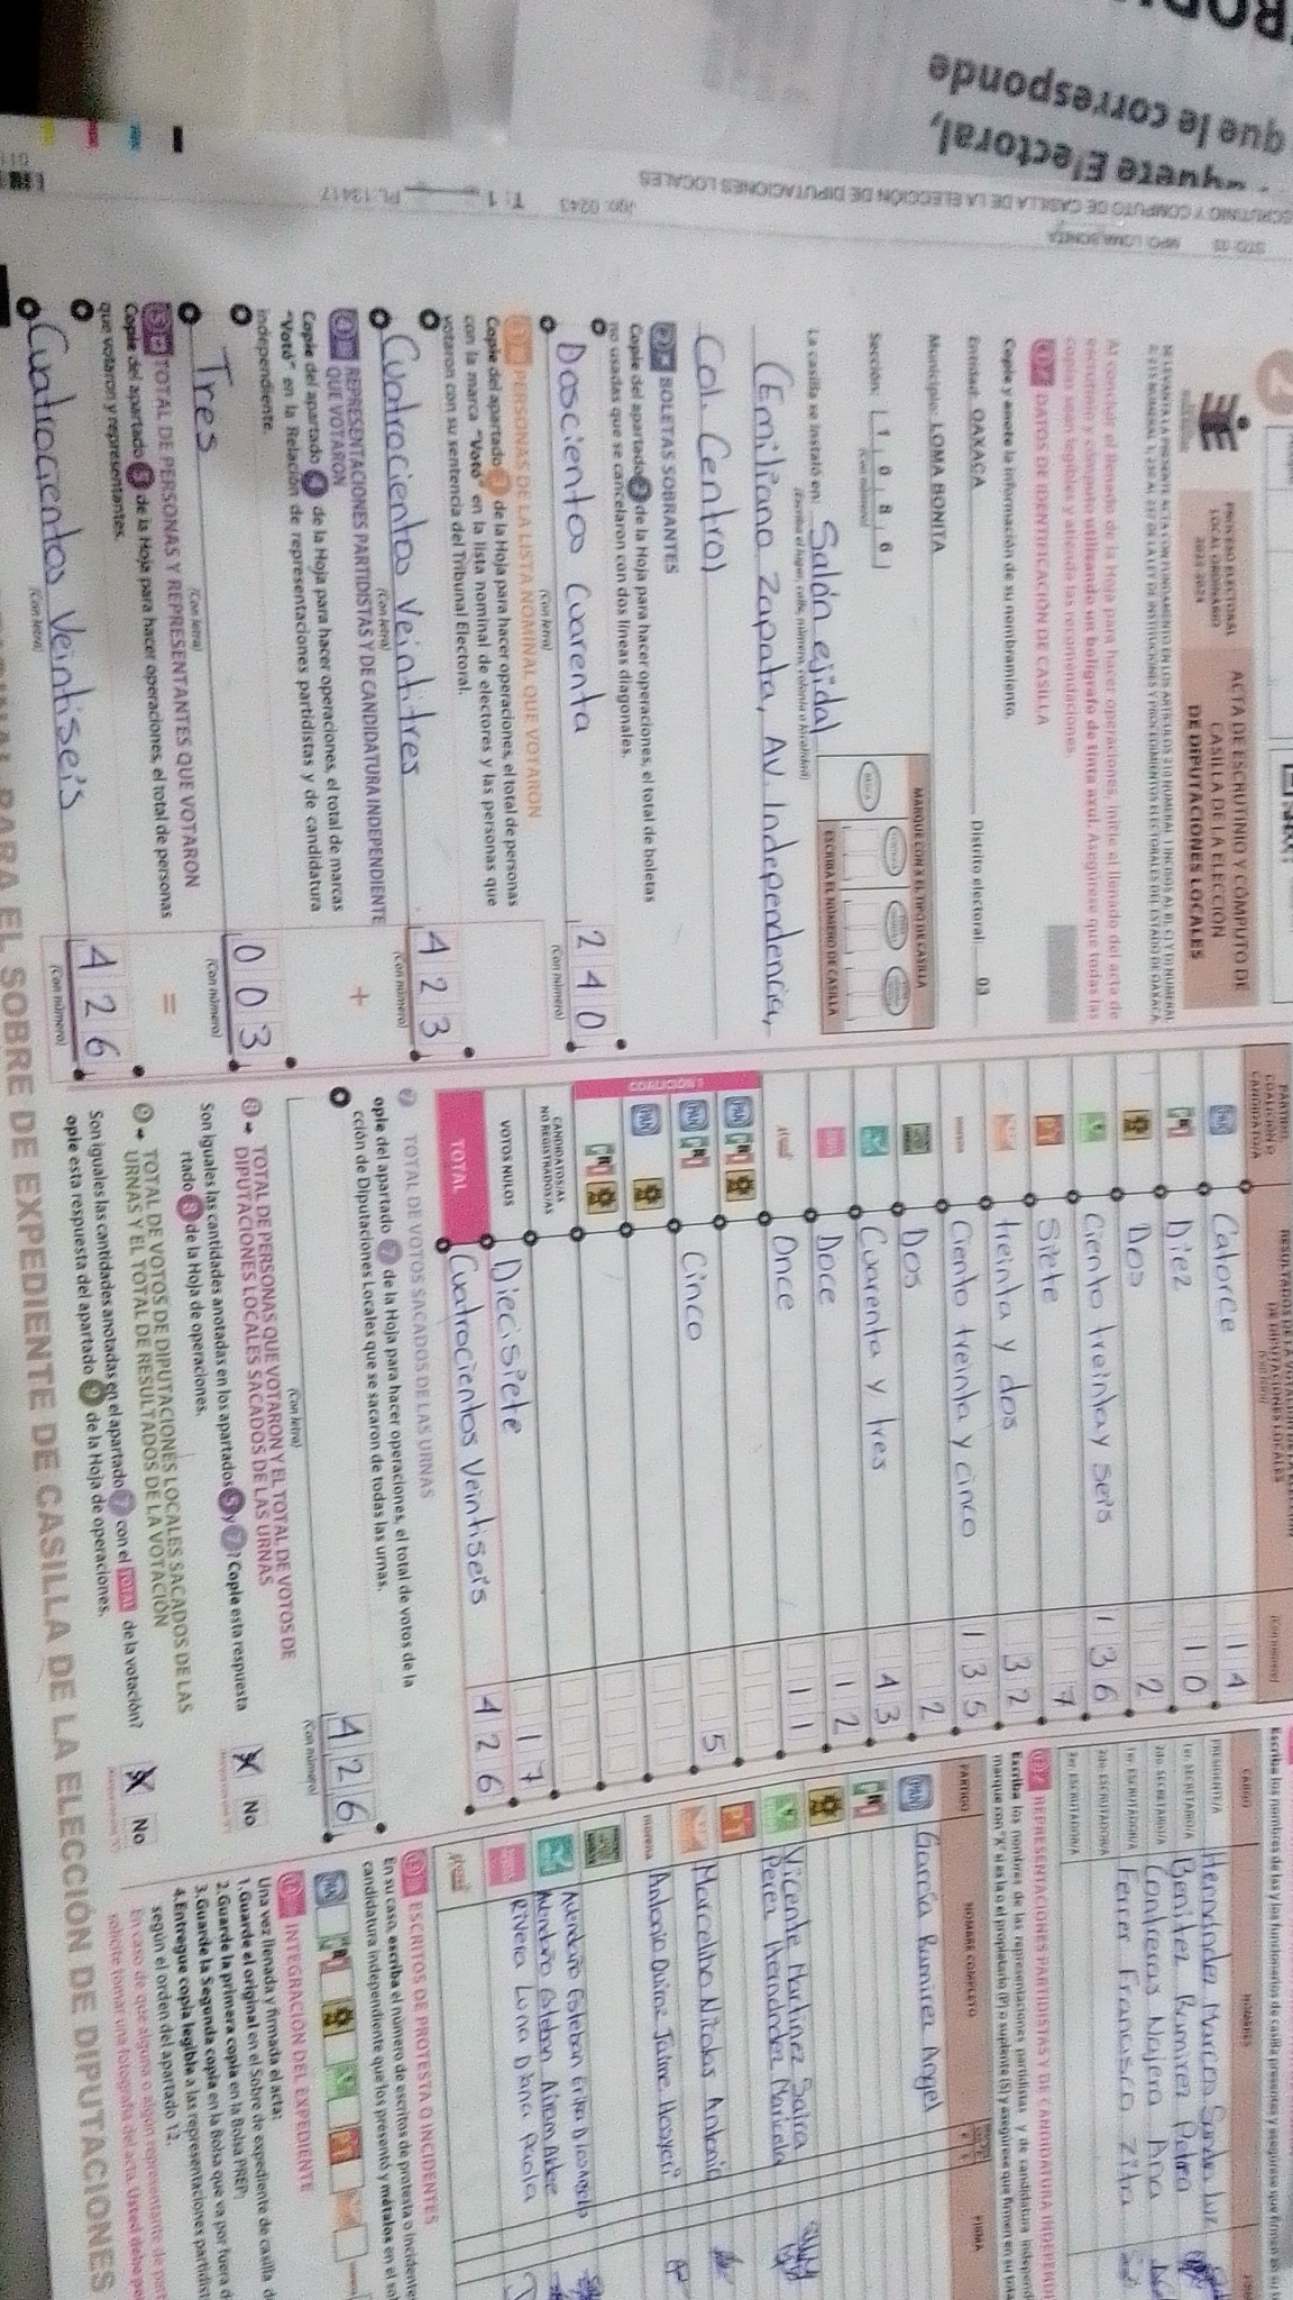 que le corresponde
ESCRUTINIO Y CÓMPUTO DE CASILLA DE LA ELECCIÓN DE DIPUTACIONES LOCALES
2
PROCESO ELECTORAL
LOCAL ORDINARIO
2023-2024
ACTA DE ESCRUTINIO Y CÓMPUTO DE
CASILLA DE LA ELECCIÓN
DE DIPUTACIONES LOCALES
Al concluir el llenado de la Hoja para hacer operaciones, inicie el llenado del acta de
escrutinio y cómputo utilizando un bolígrafo de tinta azul. Asegúrese que todas las
copias sean legibles y atienda las recomendaciones.
DATOS DE IDENTIFICACIÓN DE CASILLA
Copie y anote la información de su nombramiento.
Entidad: OAXACA Distrito electoral: 03
Municipio: LOMA BONITA
Sección: 1 0 8 6
(Con número)
MARQUE CON X EL TIPO DE CASILLA
ESCRIBA EL NÚMERO DE CASILLA
La casilla se instaló en: Salón ejidal
(Escriba el lugar, calle, número, colonia o localidad)
(Emiliano Zapata, AV. Independencia,
Col. Centro)
2 BOLETAS SOBRANTES
Copie del apartado 2 de la Hoja para hacer operaciones, el total de boletas
no usadas que se cancelaron con dos líneas diagonales.
Doscientos Cuarenta 240
(Con letra) (Con número)
3 PERSONAS DE LA LISTA NOMINAL QUE VOTARON
Copie del apartado 3 de la Hoja para hacer operaciones, el total de personas
con la marca "Votó" en la lista nominal de electores y las personas que
votaron con su sentencia del Tribunal Electoral.
Cuatrocientos Veintitres 423
(Con letra) (Con número)
4 REPRESENTACIONES PARTIDISTAS Y DE CANDIDATURA INDEPENDIENTE
QUE VOTARON
+
Copie del apartado 4 de la Hoja para hacer operaciones, el total de marcas
"Votó" en la Relación de representaciones partidistas y de candidatura
independiente.
Tres 003
(Con letra) (Con número)
5 TOTAL DE PERSONAS Y REPRESENTANTES QUE VOTARON
=
Copie del apartado 5 de la Hoja para hacer operaciones, el total de personas
que votaron y representantes.
Cuatrocientos Veintiseis 426
(Con letra) (Con número)
PARTIDO,
COALICIÓN O
CANDIDATURA
PAN Catorce 14
PRI Diez 10
Dos 2
Ciento treinta y seis 136
PT Siete 7
treinta y dos 32
morena Ciento treinta y cinco 135
Dos 2
Cuarenta y tres 43
Doce 12
Once 11
COALICIÓN
PAN PRI
PAN PRI Cinco 5
PAN
PRI
CANDIDATOS/AS
NO REGISTRADOS/AS
VOTOS NULOS Diecisiete 17
TOTAL Cuatrocientos Veintiseis 426
7 TOTAL DE VOTOS SACADOS DE LAS URNAS
Cople del apartado 7 de la Hoja para hacer operaciones, el total de votos de la
cción de Diputaciones Locales que se sacaron de todas las urnas.
426
(Con letra) (Con número)
8 TOTAL DE PERSONAS QUE VOTARON Y EL TOTAL DE VOTOS DE
DIPUTACIONES LOCALES SACADOS DE LAS URNAS
Son iguales las cantidades anotadas en los apartados 5 y 7? Copie esta respuesta
rtado 8 de la Hoja de operaciones.
No
9 TOTAL DE VOTOS DE DIPUTACIONES LOCALES SACADOS DE LAS
URNAS Y EL TOTAL DE RESULTADOS DE LA VOTACIÓN
Son iguales las cantidades anotadas en el apartado 7 con el TOTAL de la votación?
ople esta respuesta del apartado 9 de la Hoja de operaciones.
No
Escriba los nombres de las y los funcionarios de casilla presentes y asegúrese que firmen en su
CARGO NOMBRES
PRESIDENTE/A
1er. SECRETARIO/A Benitez Ramirez
2do. SECRETARIO/A Contreras Najera Ana
1er. ESCRUTADOR/A Ferrer Francisco Zitra
2do. ESCRUTADOR/A
3er. ESCRUTADOR/A
REPRESENTACIONES PARTIDISTAS Y DE CANDIDATURA INDEPENDI
Escriba los nombres de las representaciones partidistas y de candidatura independ
marque con "X" si es la o el propietario (P) o suplente (S) y asegúrese que firmen en su tota
PARTIDO NOMBRE COMPLETO FIRMA
PAN García Ramirez Angel
PRI
Vicente Martinez Saira
Perez Hernandez Maricela
PT
Marcelino Nicolas Antonio
morena Antonio Quiroz Jaime
Avendaño Esteban
Avendaño Esteban Airam
Rivera Luna Dana Paola
ESCRITOS DE PROTESTA O INCIDENTES
En su caso, escriba el número de escritos de protesta o incidente
candidatura independiente que los presentó y métalos en el so
INTEGRACIÓN DEL EXPEDIENTE
Una vez llenada y firmada el acta:
1.Guarde el original en el Sobre de expediente de casilla d
2.Guarde la primera copia en la Bolsa PREP.
3.Guarde la Segunda copia en la Bolsa que va por fuera d
4.Entregue copia legible a las representaciones partidist
según el orden del apartado 12.
En caso de que alguna o algún representante de part
solicite tomar una fotografía del acta, Usted debe pe
PARA EL SOBRE DE EXPEDIENTE DE CASILLA DE LA ELECCIÓN DE DIPUTACIONES